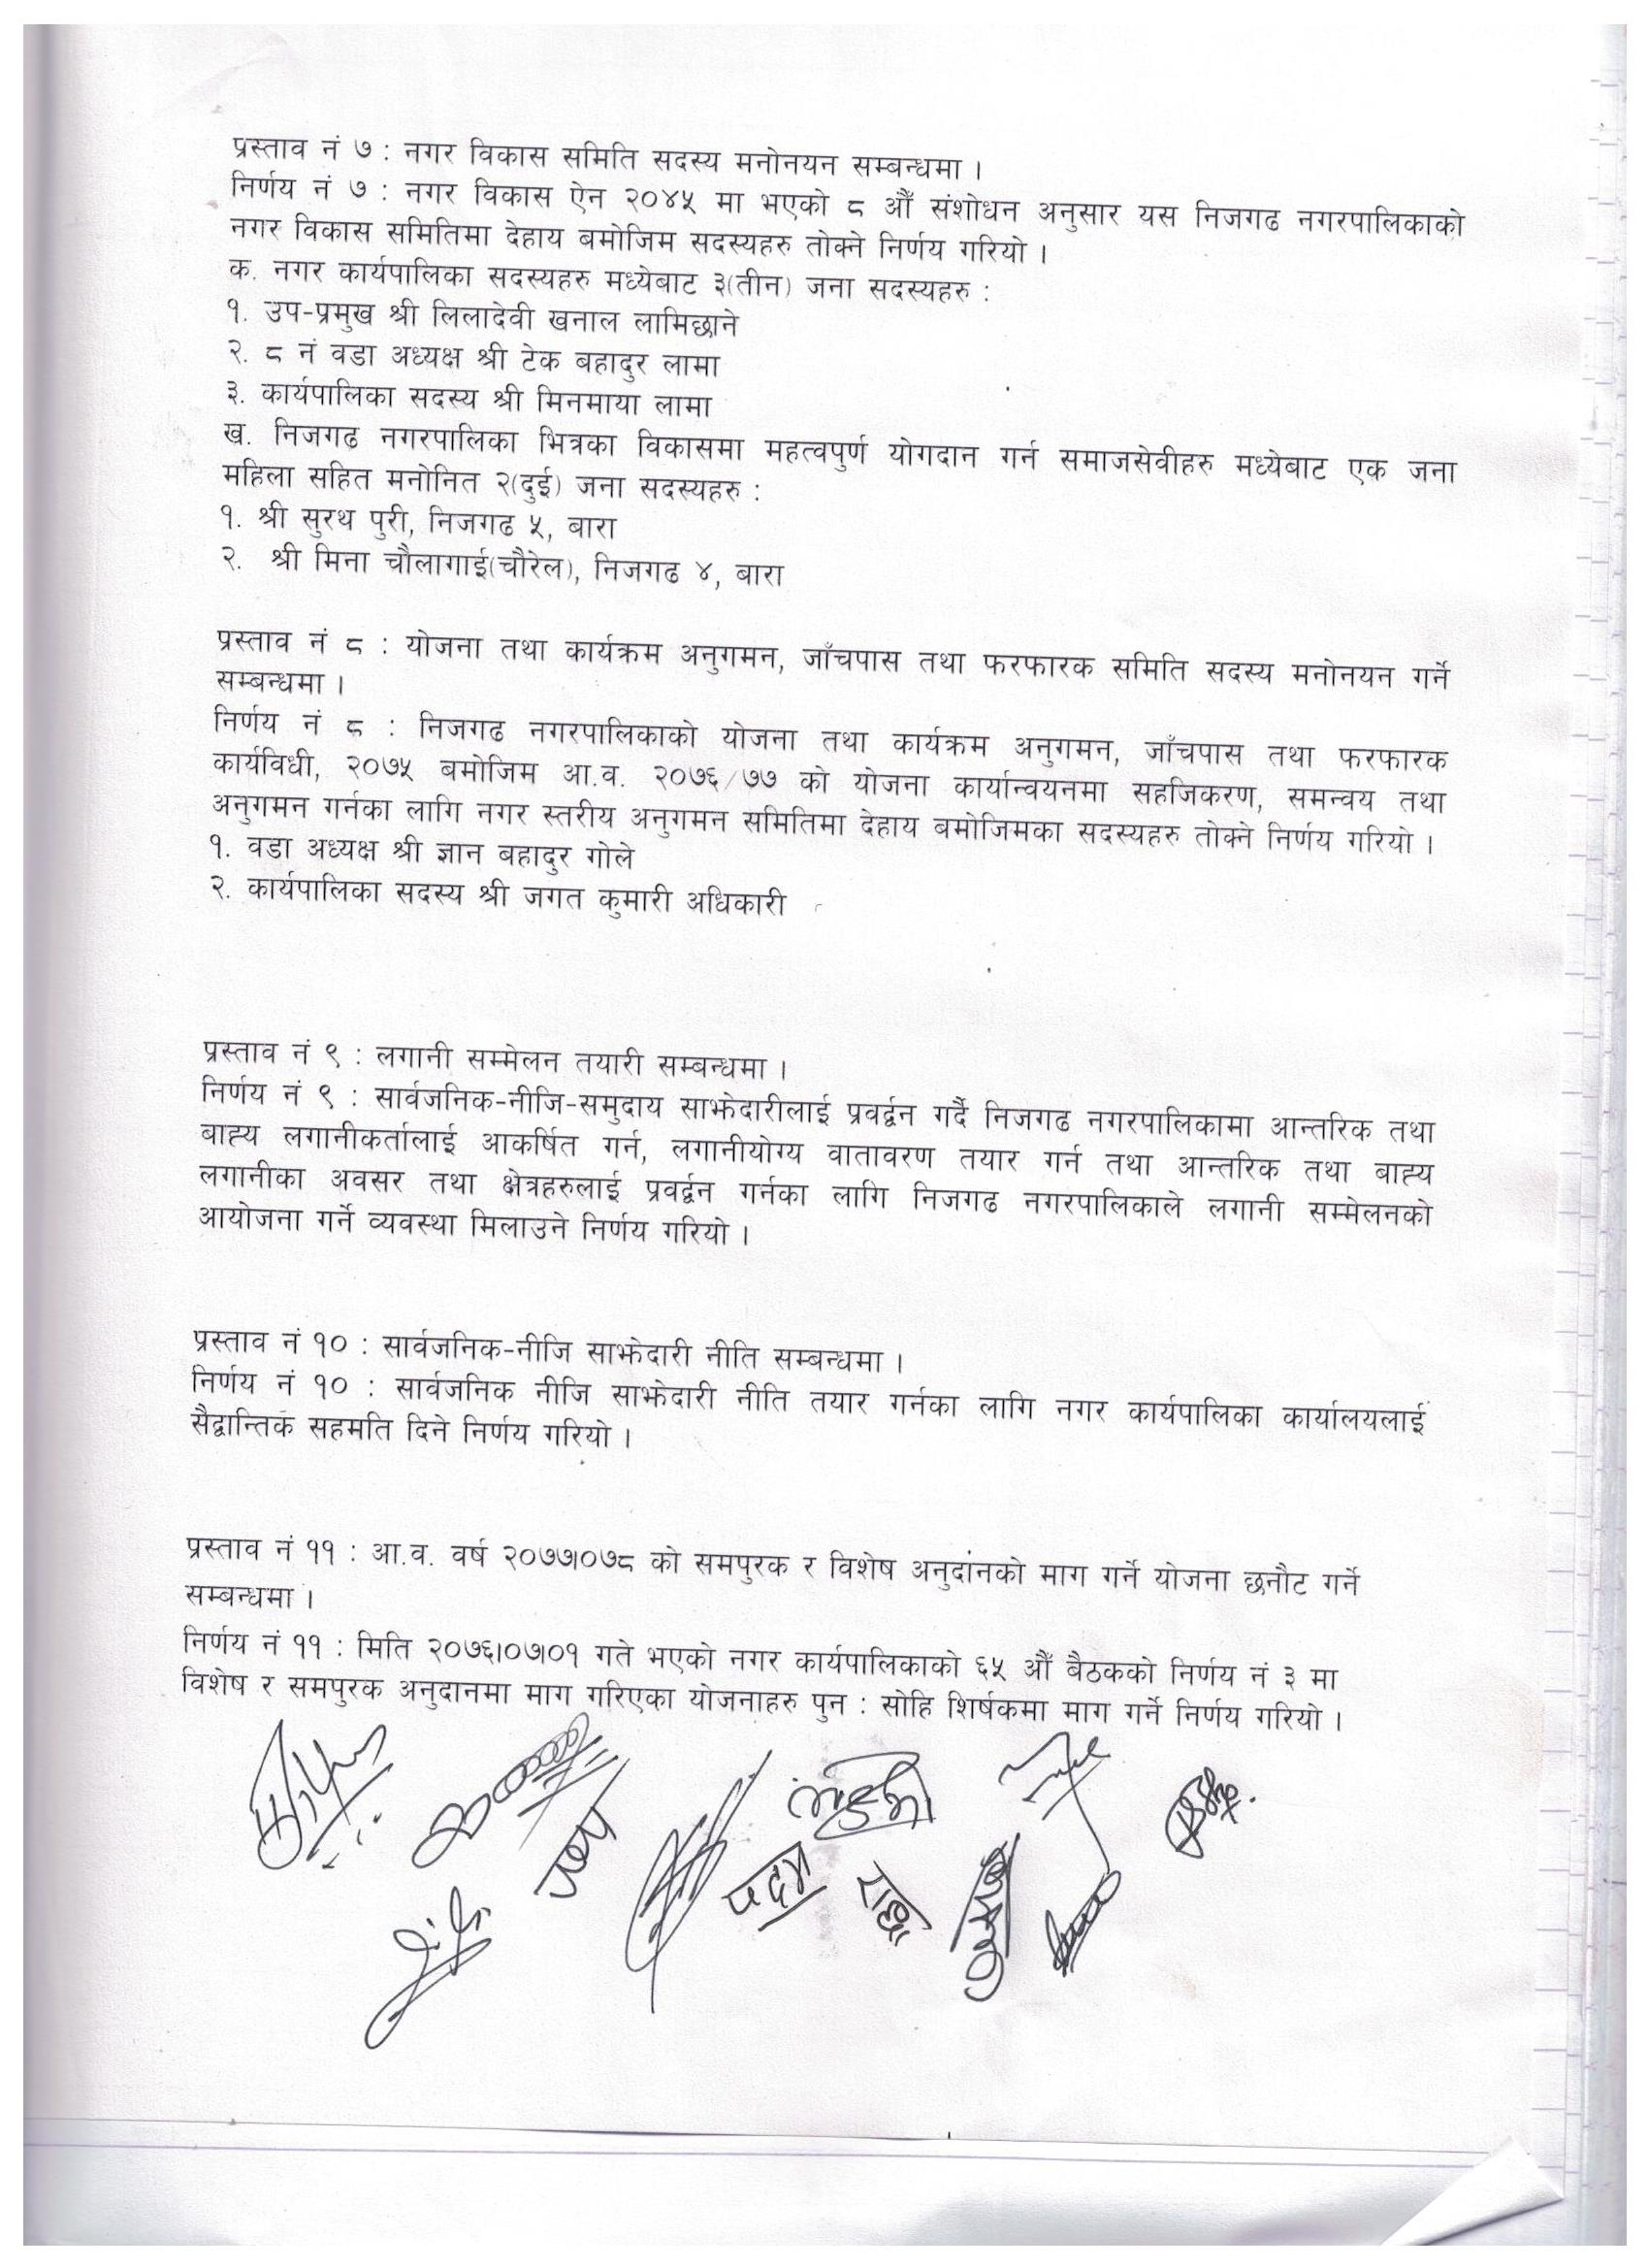 प्रस्ताव नं ७ : नगर विकास समिति सदस्य मनोनयन सम्बन्धमा ।
निर्णय नं ७ : नगर विकास ऐन २०४५ मा भएको ८ औँ संशोधन अनुसार यस निजगढ नगरपालिकाको
नगर विकास समितिमा देहाय बमोजिम सदस्यहरु तोक्ने निर्णय गरियो ।
क. नगर कार्यपालिका सदस्यहरु मध्येबाट ३(तीन) जना सदस्यहरु :
१. उप-प्रमुख श्री लिलादेवी खनाल लामिछाने
२. ८ नं वडा अध्यक्ष श्री टेक बहादुर लामा
३. कार्यपालिका सदस्य श्री मिनमाया लामा
ख. निजगढ नगरपालिका भित्रका विकासमा महत्वपुर्ण योगदान गर्न समाजसेवीहरु मध्येबाट एक जना
महिला सहित मनोनित २(दुई) जना सदस्यहरु :
१. श्री सुरथ पुरी, निजगढ ५, बारा
२. श्री मिना चौलागाई(चौरेल), निजगढ ४, बारा
प्रस्ताव नं ८ : योजना तथा कार्यक्रम अनुगमन, जाँचपास तथा फरफारक समिति सदस्य मनोनयन गर्ने
सम्बन्धमा ।
निर्णय नं ८ : निजगढ नगरपालिकाको योजना तथा कार्यक्रम अनुगमन, जाँचपास तथा फरफारक
कार्यविधी, २०७५ बमोजिम आ.व. २०७६/७७ को योजना कार्यान्वयनमा सहजिकरण, समन्वय तथा
अनुगमन गर्नका लागि नगर स्तरीय अनुगमन समितिमा देहाय बमोजिमका सदस्यहरु तोक्ने निर्णय गरियो ।
१. वडा अध्यक्ष श्री ज्ञान बहादुर गोले
२. कार्यपालिका सदस्य श्री जगत कुमारी अधिकारी
प्रस्ताव नं ९ : लगानी सम्मेलन तयारी सम्बन्धमा ।
निर्णय नं ९ : सार्वजनिक-नीजि-समुदाय साझेदारीलाई प्रवर्द्वन गर्दै निजगढ नगरपालिकामा आन्तरिक तथा
बाह्य लगानीकर्तालाई आकर्षित गर्न, लगानीयोग्य वातावरण तयार गर्न तथा आन्तरिक तथा बाह्य
लगानीका अवसर तथा क्षेत्रहरुलाई प्रवर्द्वन गर्नका लागि निजगढ नगरपालिकाले लगानी सम्मेलनको
आयोजना गर्ने व्यवस्था मिलाउने निर्णय गरियो ।
प्रस्ताव नं १० : सार्वजनिक-नीजि साझेदारी नीति सम्बन्धमा ।
निर्णय नं १० : सार्वजनिक नीजि साझेदारी नीति तयार गर्नका लागि नगर कार्यपालिका कार्यालयलाई
सैद्वान्तिक सहमति दिने निर्णय गरियो ।
प्रस्ताव नं ११ : आ.व. वर्ष २०७७।०७८ को समपुरक र विशेष अनुदांनको माग गर्ने योजना छनौट गर्ने
सम्बन्धमा ।
निर्णय नं ११ : मिति २०७६।०७।०१ गते भएको नगर कार्यपालिकाको ६५ औँ बैठकको निर्णय नं ३ मा
विशेष र समपुरक अनुदानमा माग गरिएका योजनाहरु पुन : सोहि शिर्षकमा माग गर्ने निर्णय गरियो ।
पदम